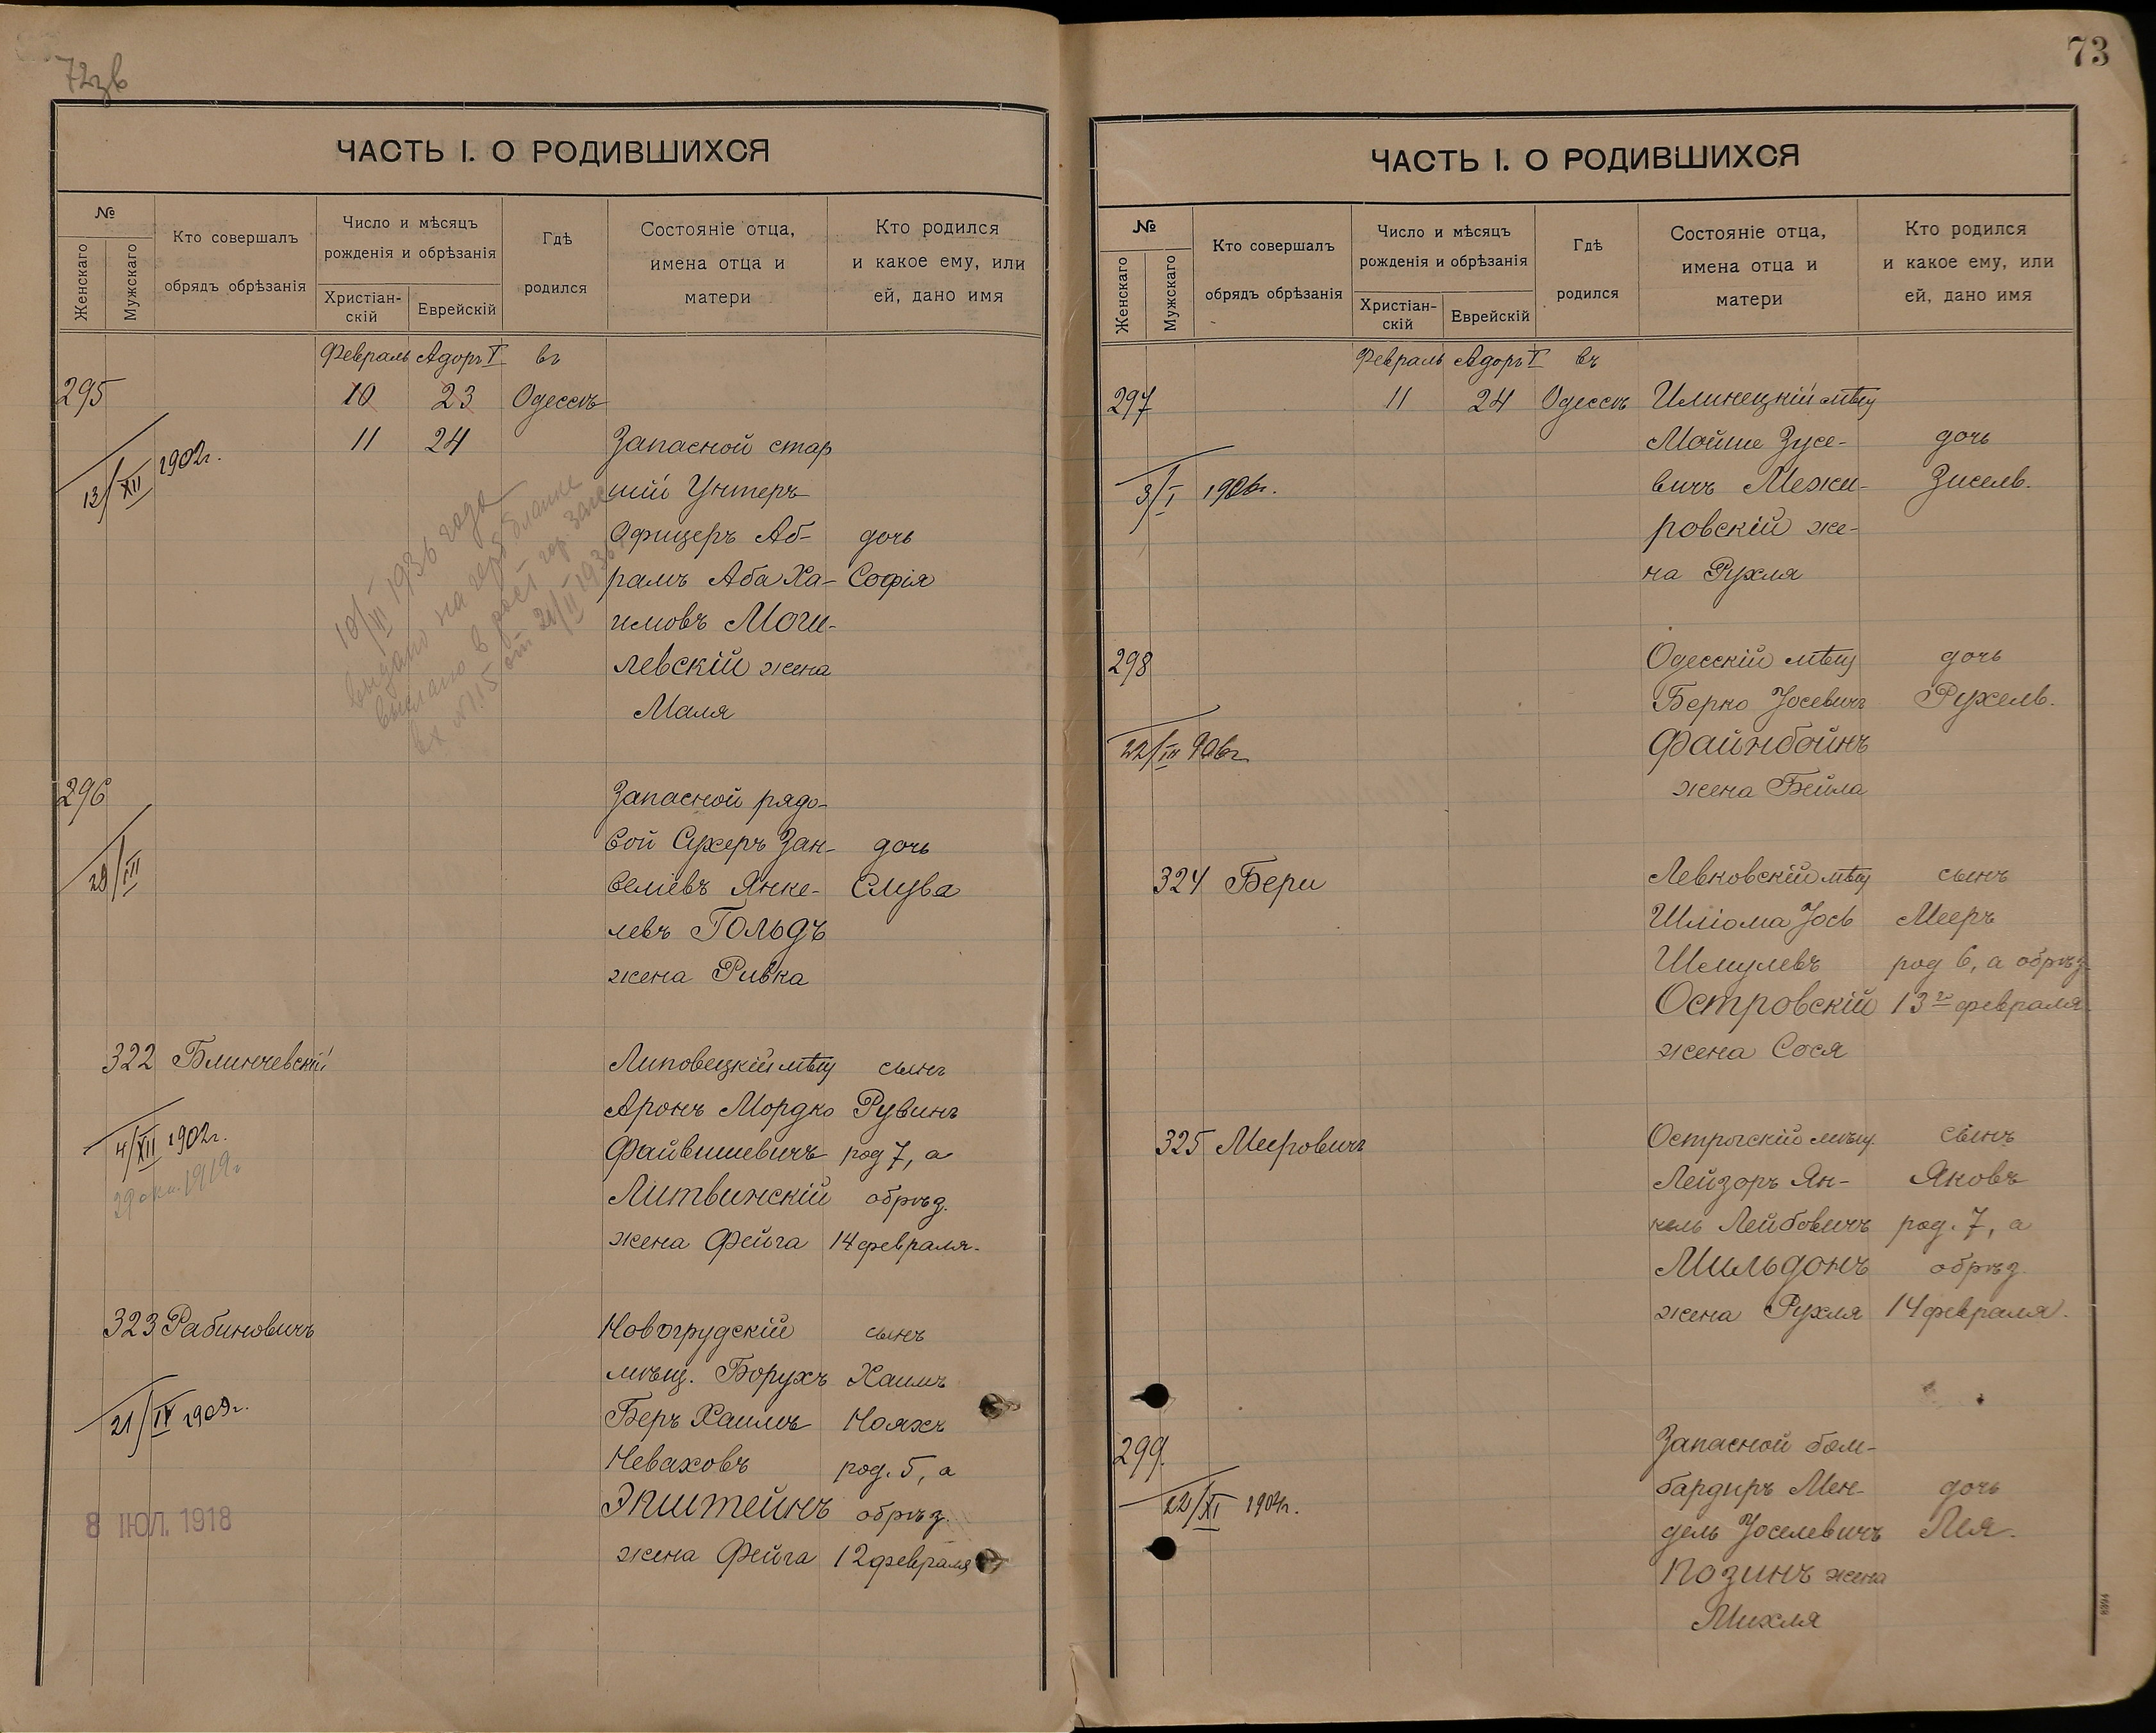 72зв
ЧАСТЬ I. О РОДИВШИХСЯ
№
Женскаго
Мужскаго
Кто совершалъ
обрядъ обрѣзанія
Число и мѣсяцъ
рожденія и обрѣзанія
Христіан-
скій
Еврейскій
Гдѣ
родился
Состояніе отца,
имена отца и
матери
Кто родился
и какое ему, или
ей, дано имя
Февраль Адоръ I въ
295 10 23 Одессѣ
11 24 Запасной стар
13/XII 1902г.
шій Унтеръ
Офицеръ Аб- дочь
рамъ Аба Ха- Софія
имовъ Моги-
левскій жена
Маля
10/III 1936 года
выдано на герб бланке
выслано в рост гор. загс
вх №115 от 21/II 1936
296 Запасной рядо-
вой Сухеръ Зан- дочь
29/III
велиевъ Янке- Слува
левъ Гольдъ
жена Ривка
322 Блинчевскій Липовецкій мѣщ сынъ
Аронъ Мордко Рувинъ
4/XII 1902г.
Файвишевичъ род 7, а
29 окт. 1919г
Литвинскій обрѣз.
жена Фейга 14 февраля.
323 Рабиновичъ Новогрудскій сынъ
мѣщ. Борухъ Хаимъ
21/IV 1909г.
Беръ Хаимъ Нояхъ
Неваховъ род. 5, а
Экштейнъ обрѣз.
8 ІЮЛ. 1918
жена Фейга 12 февраля
73
ЧАСТЬ I. О РОДИВШИХСЯ
№
Женскаго
Мужскаго
Кто совершалъ
обрядъ обрѣзанія
Число и мѣсяцъ
рожденія и обрѣзанія
Христіан-
скій
Еврейскій
Гдѣ
родился
Состояніе отца,
имена отца и
матери
Кто родился
и какое ему, или
ей, дано имя
Февраль Адоръ I въ
297 11 24 Одессѣ Илинецкій мѣщ
Мойше Зусе- дочь
3/I 1906г.
вичъ Межи- Зисель.
ровскій же-
на Рухля
298 Одесскій мѣщ дочь
Берко Іосевичъ Рухель.
22/III 906г.
Файнбойнъ
жена Бейла
324 Бери Левковскій мѣщ сынъ
Шліома Іось Мееръ
Шмулевъ род 6, а обрѣз.
Островскій 13го февраля.
жена Сося
325 Мееровичъ Острогскій мѣщ. сынъ
Лейзоръ Ян- Яковъ
кель Лейбовичъ род. 7, а
Мильдонъ обрѣз.
жена Рухля 14 февраля.
299. Запасной бом-
бардиръ Мен- дочь
22/XI 1904г.
дель Іоселевичъ Лея.
Козинъ жена
Михля